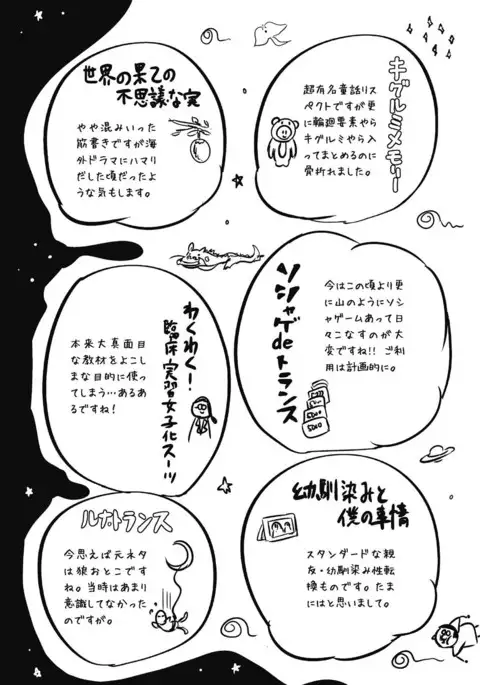 キグルミメモリー
超有名童話リス
ペクトですが更
に輪廻要素やら
キグルミやら入
ってまとめるのに
骨折れました。
世界の果ての
不思議な実
やや混みいった
筋書きですが海
外ドラマにハマり
だした頃だったよ
うな気もします。
ソシャゲdeトランス
今はこの頃より更
に山のようにソシ
ャゲームあって日
々こなすのが大
変ですね!!ご利
用は計画的に。
5000
わくわく!
臨床実習女子化スーツ
本来大真面目
な教材をよこし
まな目的に使っ
てしまう…あるあ
るですね!
幼馴染みと
僕の事情
スタンダードな親
友・幼馴染み性転
換ものです。たま
にはと思いまして。
ルナトランス
今思えば元ネタ
は狼おとこです
ね。当時はあまり
意識してなかった
のですが。